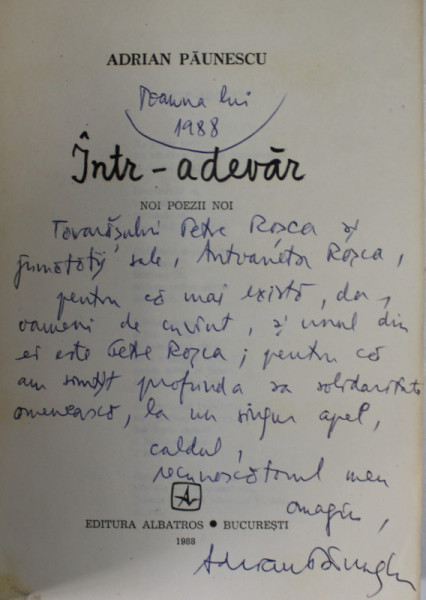 ADRIAN PĂUNESCU
Toamna lui
1988
Într-adevăr
NOI POEZII NOI
Tovarășului Petre Roșca și
jumătății sale, Antoaneta Roșca,
pentru că mai există, da,
oameni de cuvînt, și unul din
ei este Petre Roșca; pentru că
am simțit profunda sa solidaritate
omenească, la un singur apel,
caldul,
recunoscătorul meu
omagiu,
EDITURA ALBATROS • BUCUREȘTI
1988
Adrian Păunescu